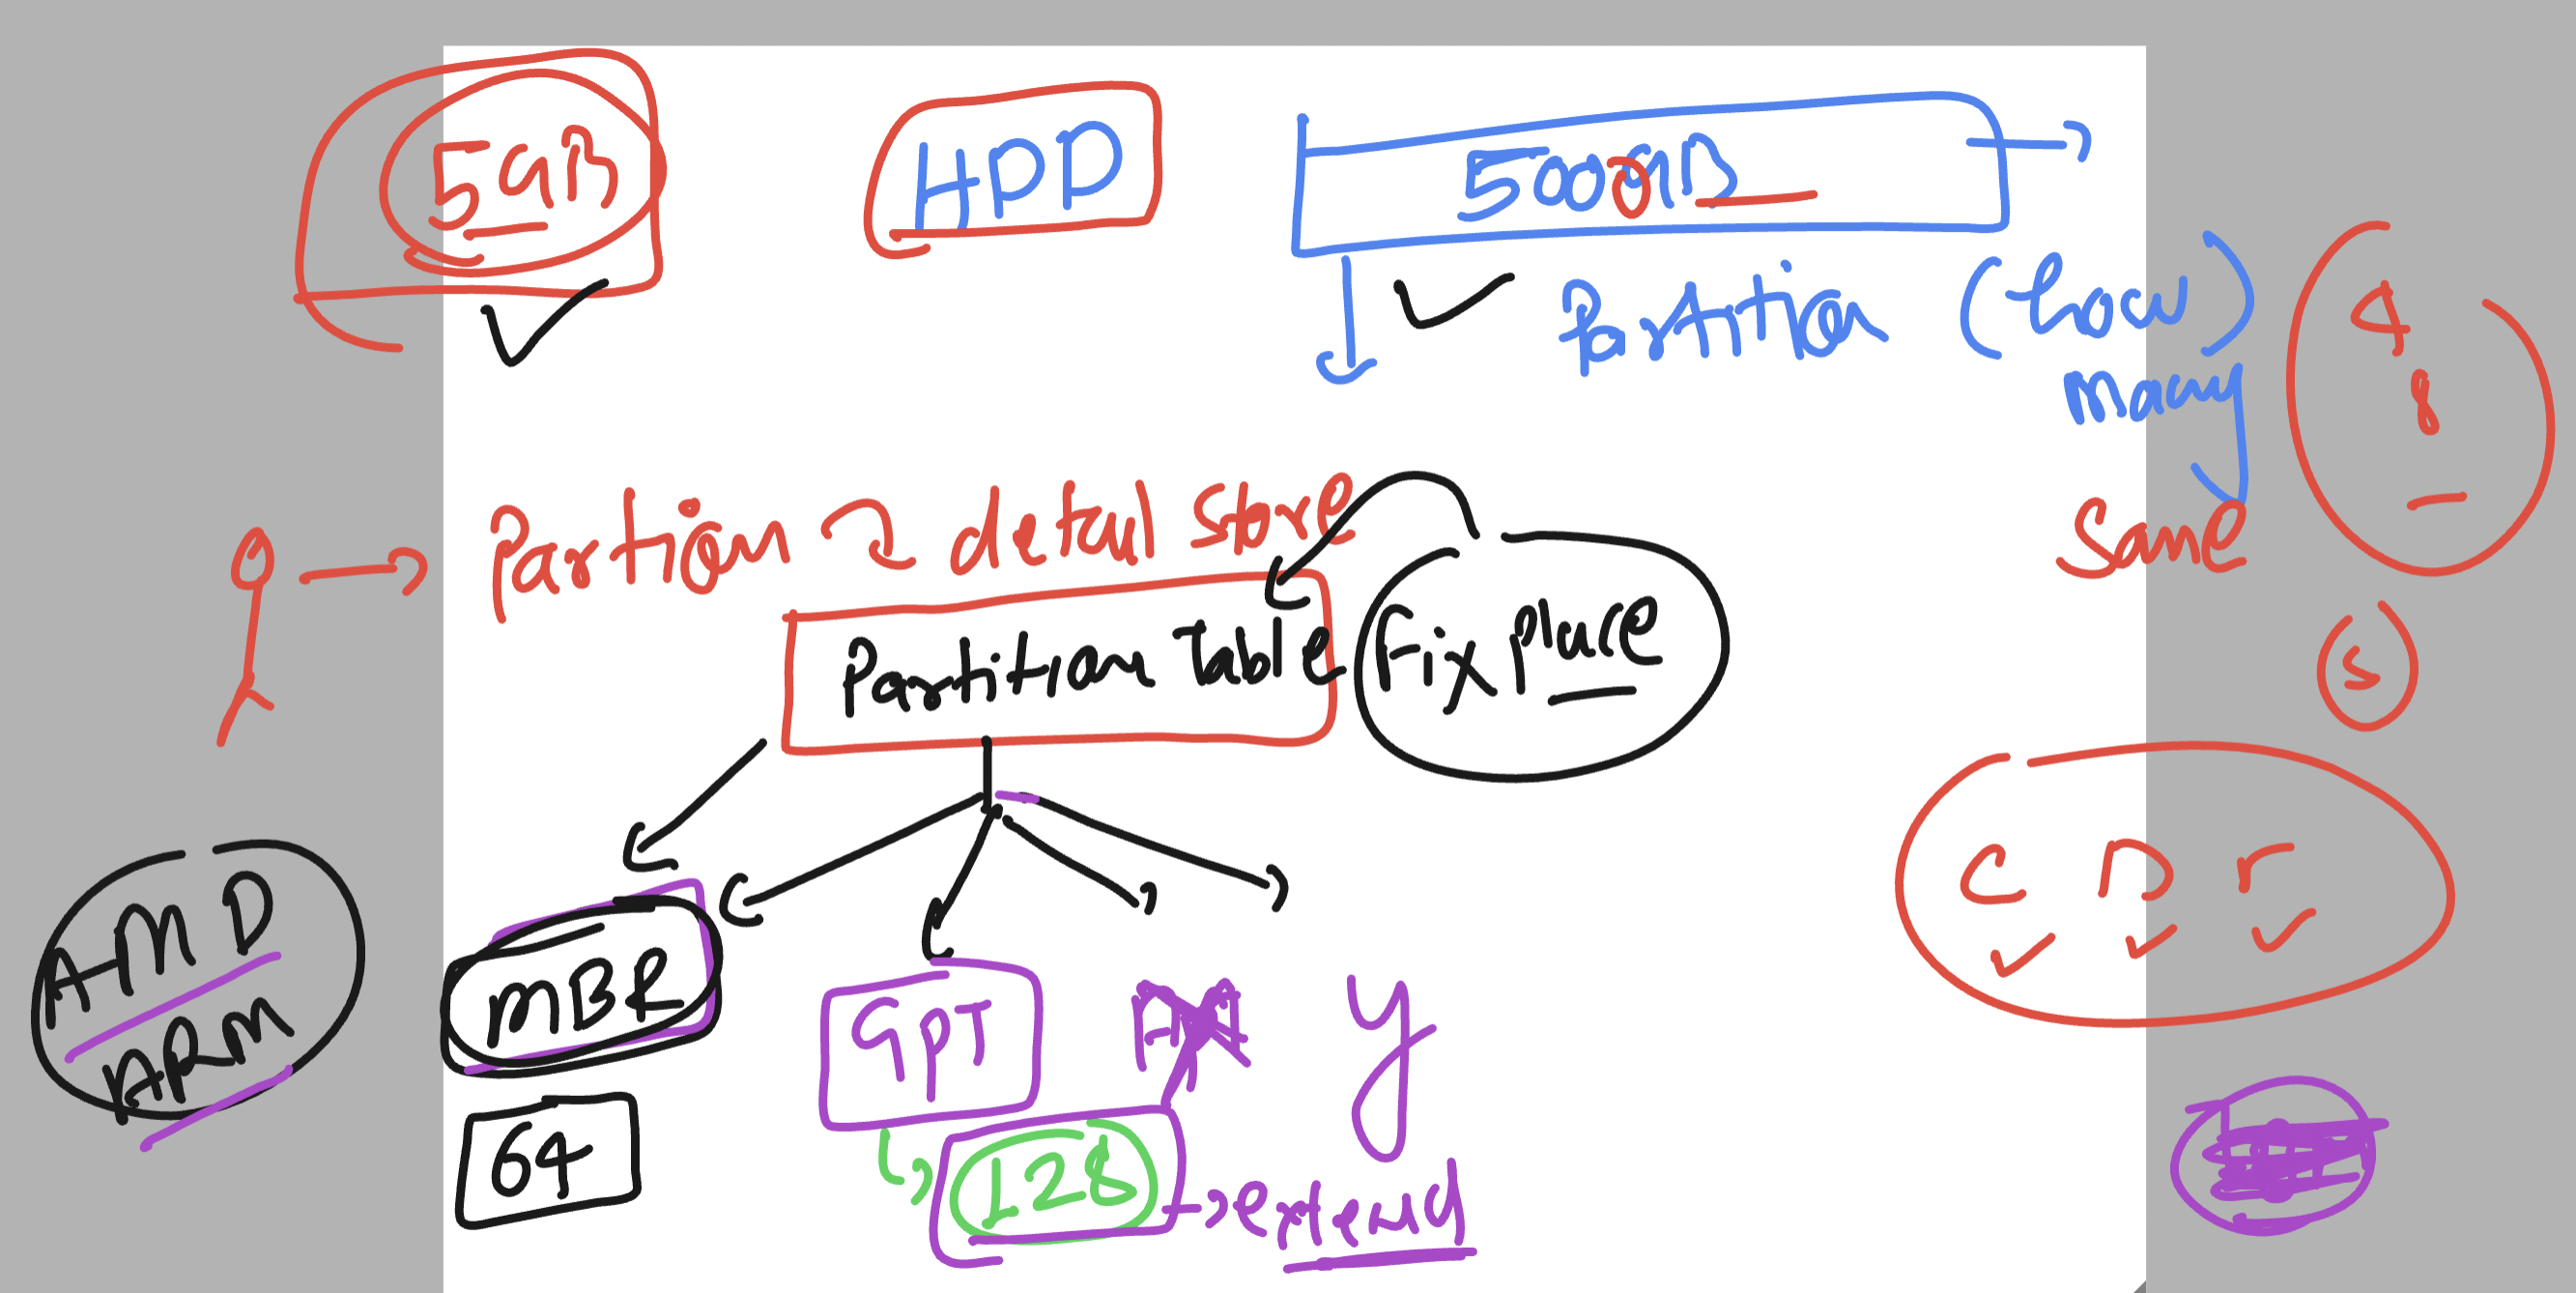 5GB
HDD
500GB
Partition (how many)
4
8
Same
Partion detail store
Partition Table
Fix place
5
C D
AMD
ARM
MBR
GPT
y
64
128
extend